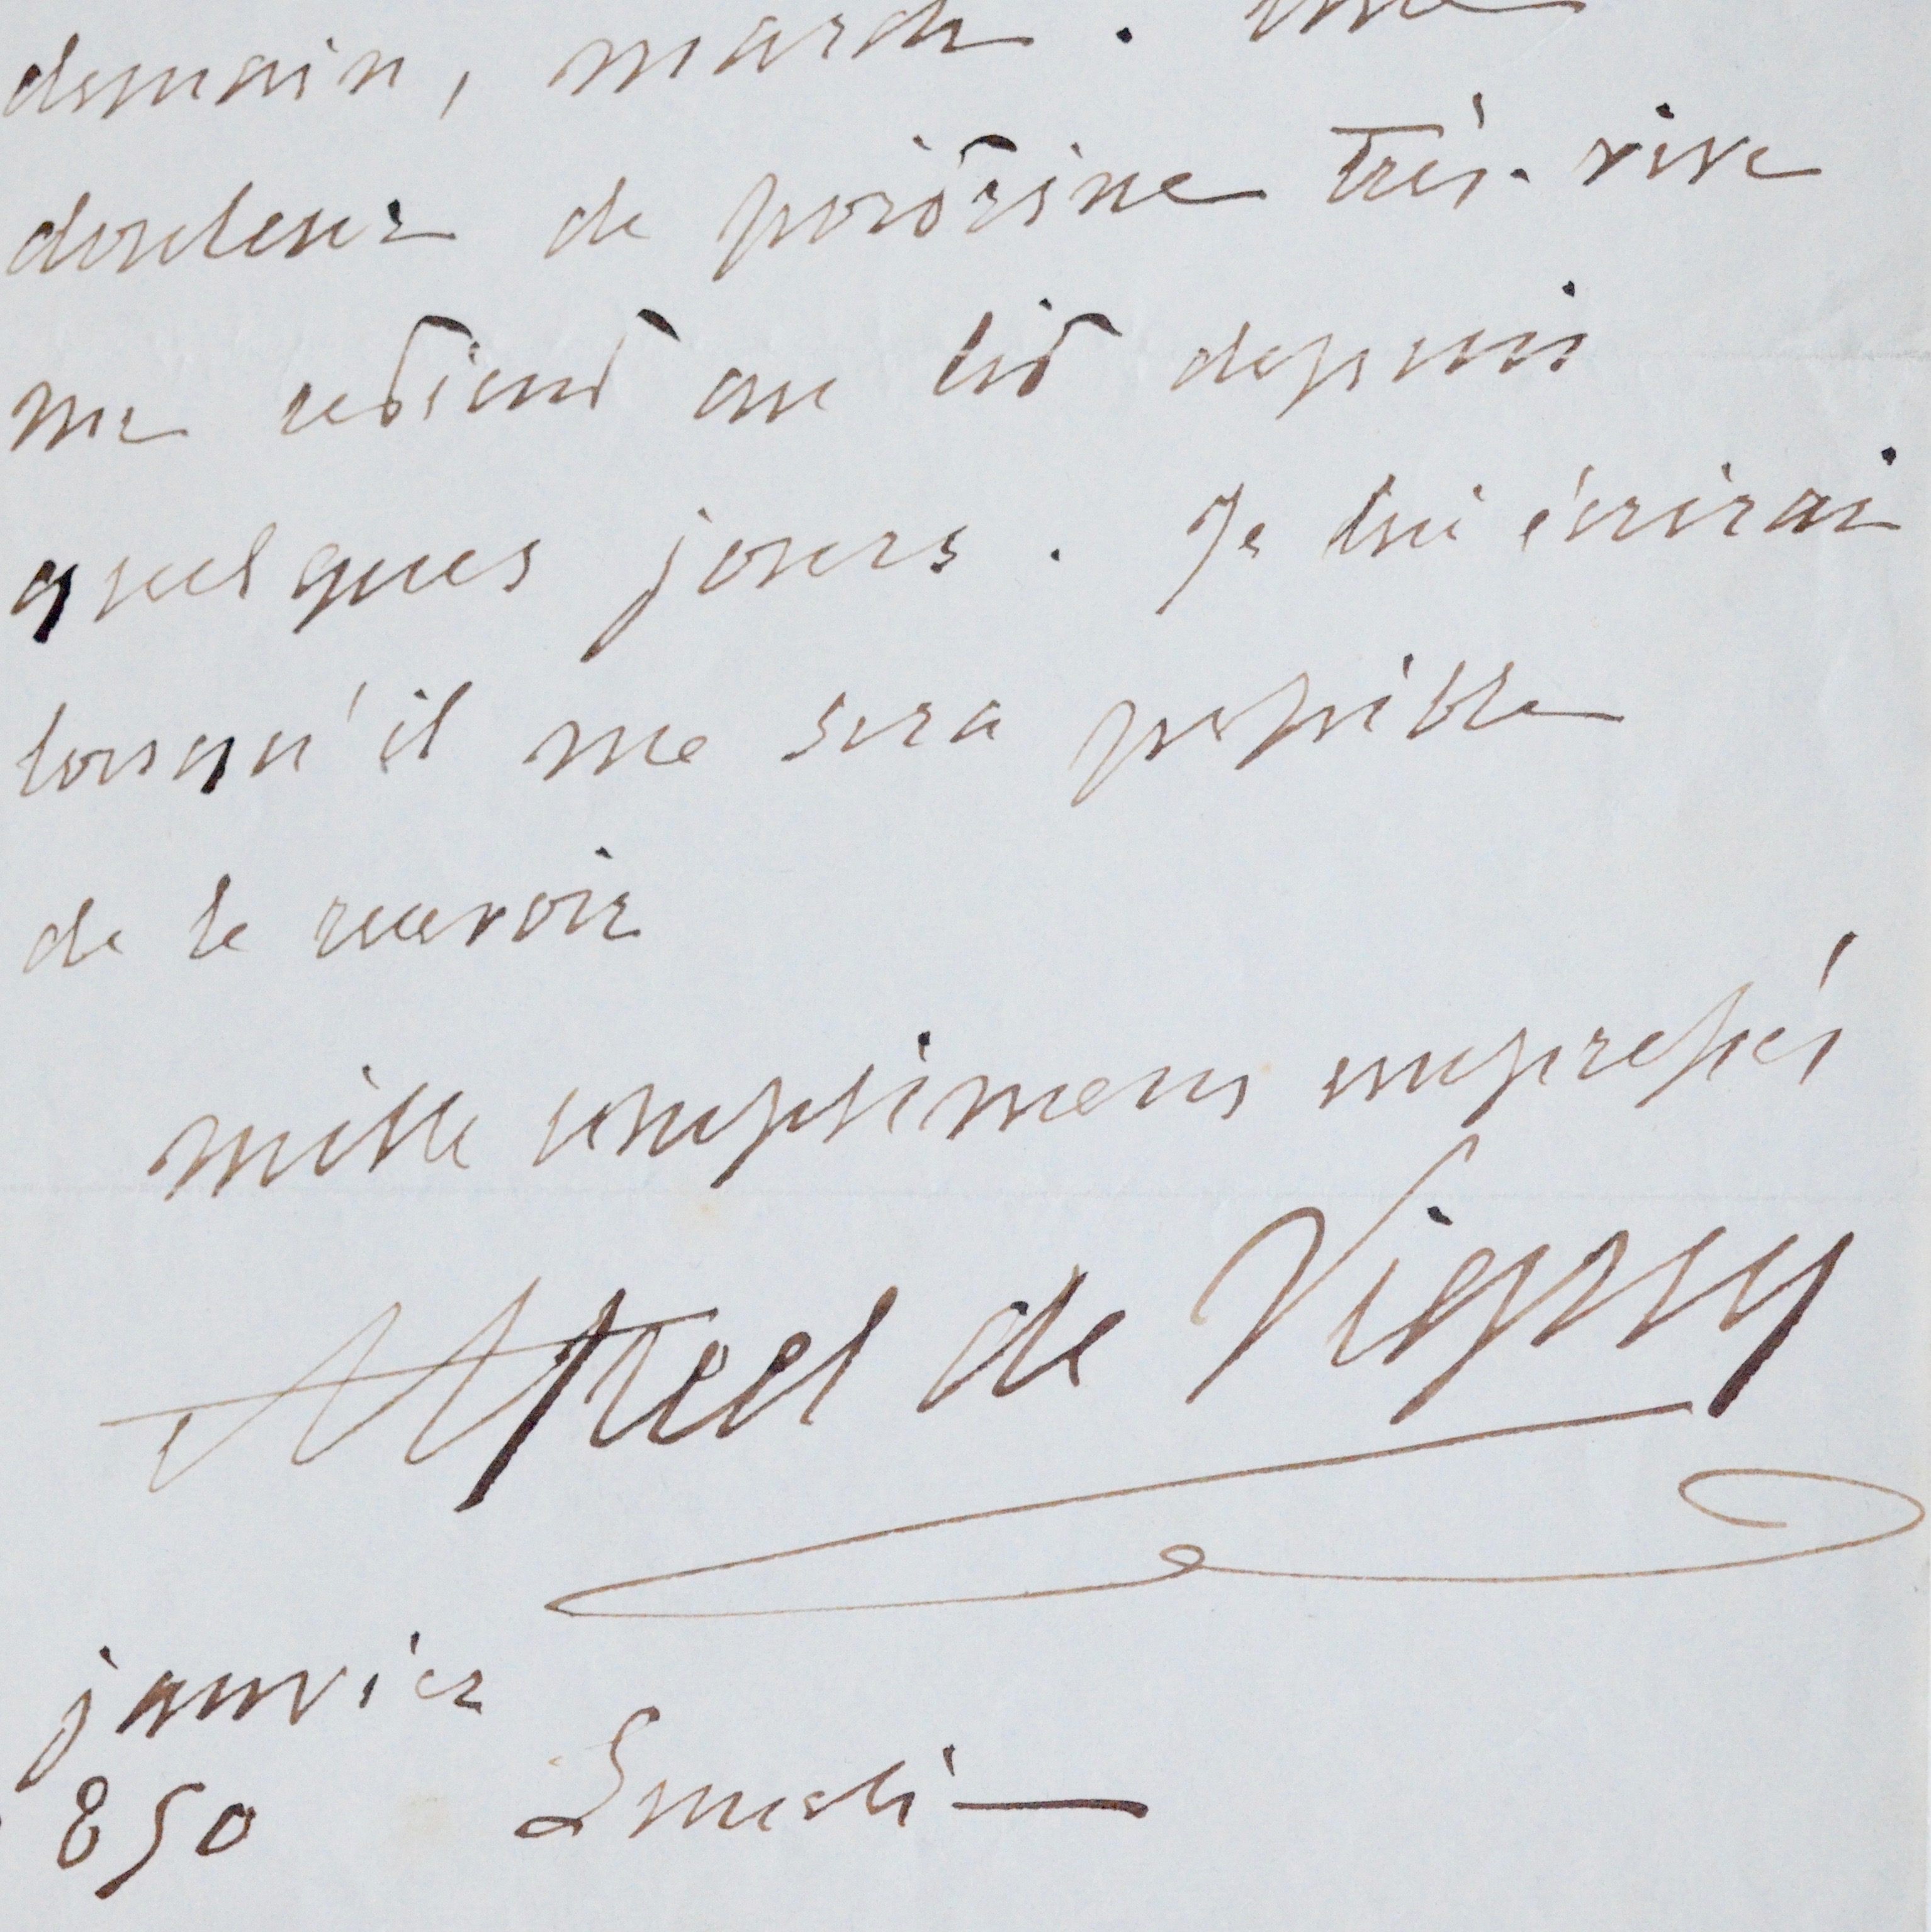 demain, mardi. Une
douleur de poitrine très-vive
me retient au lit depuis
quelques jours. Je lui écrirai
lorsqu'il me sera possible
de le recevoir
mille complimens empressés
Alfred de Vigny
janvier
850 Lundi —